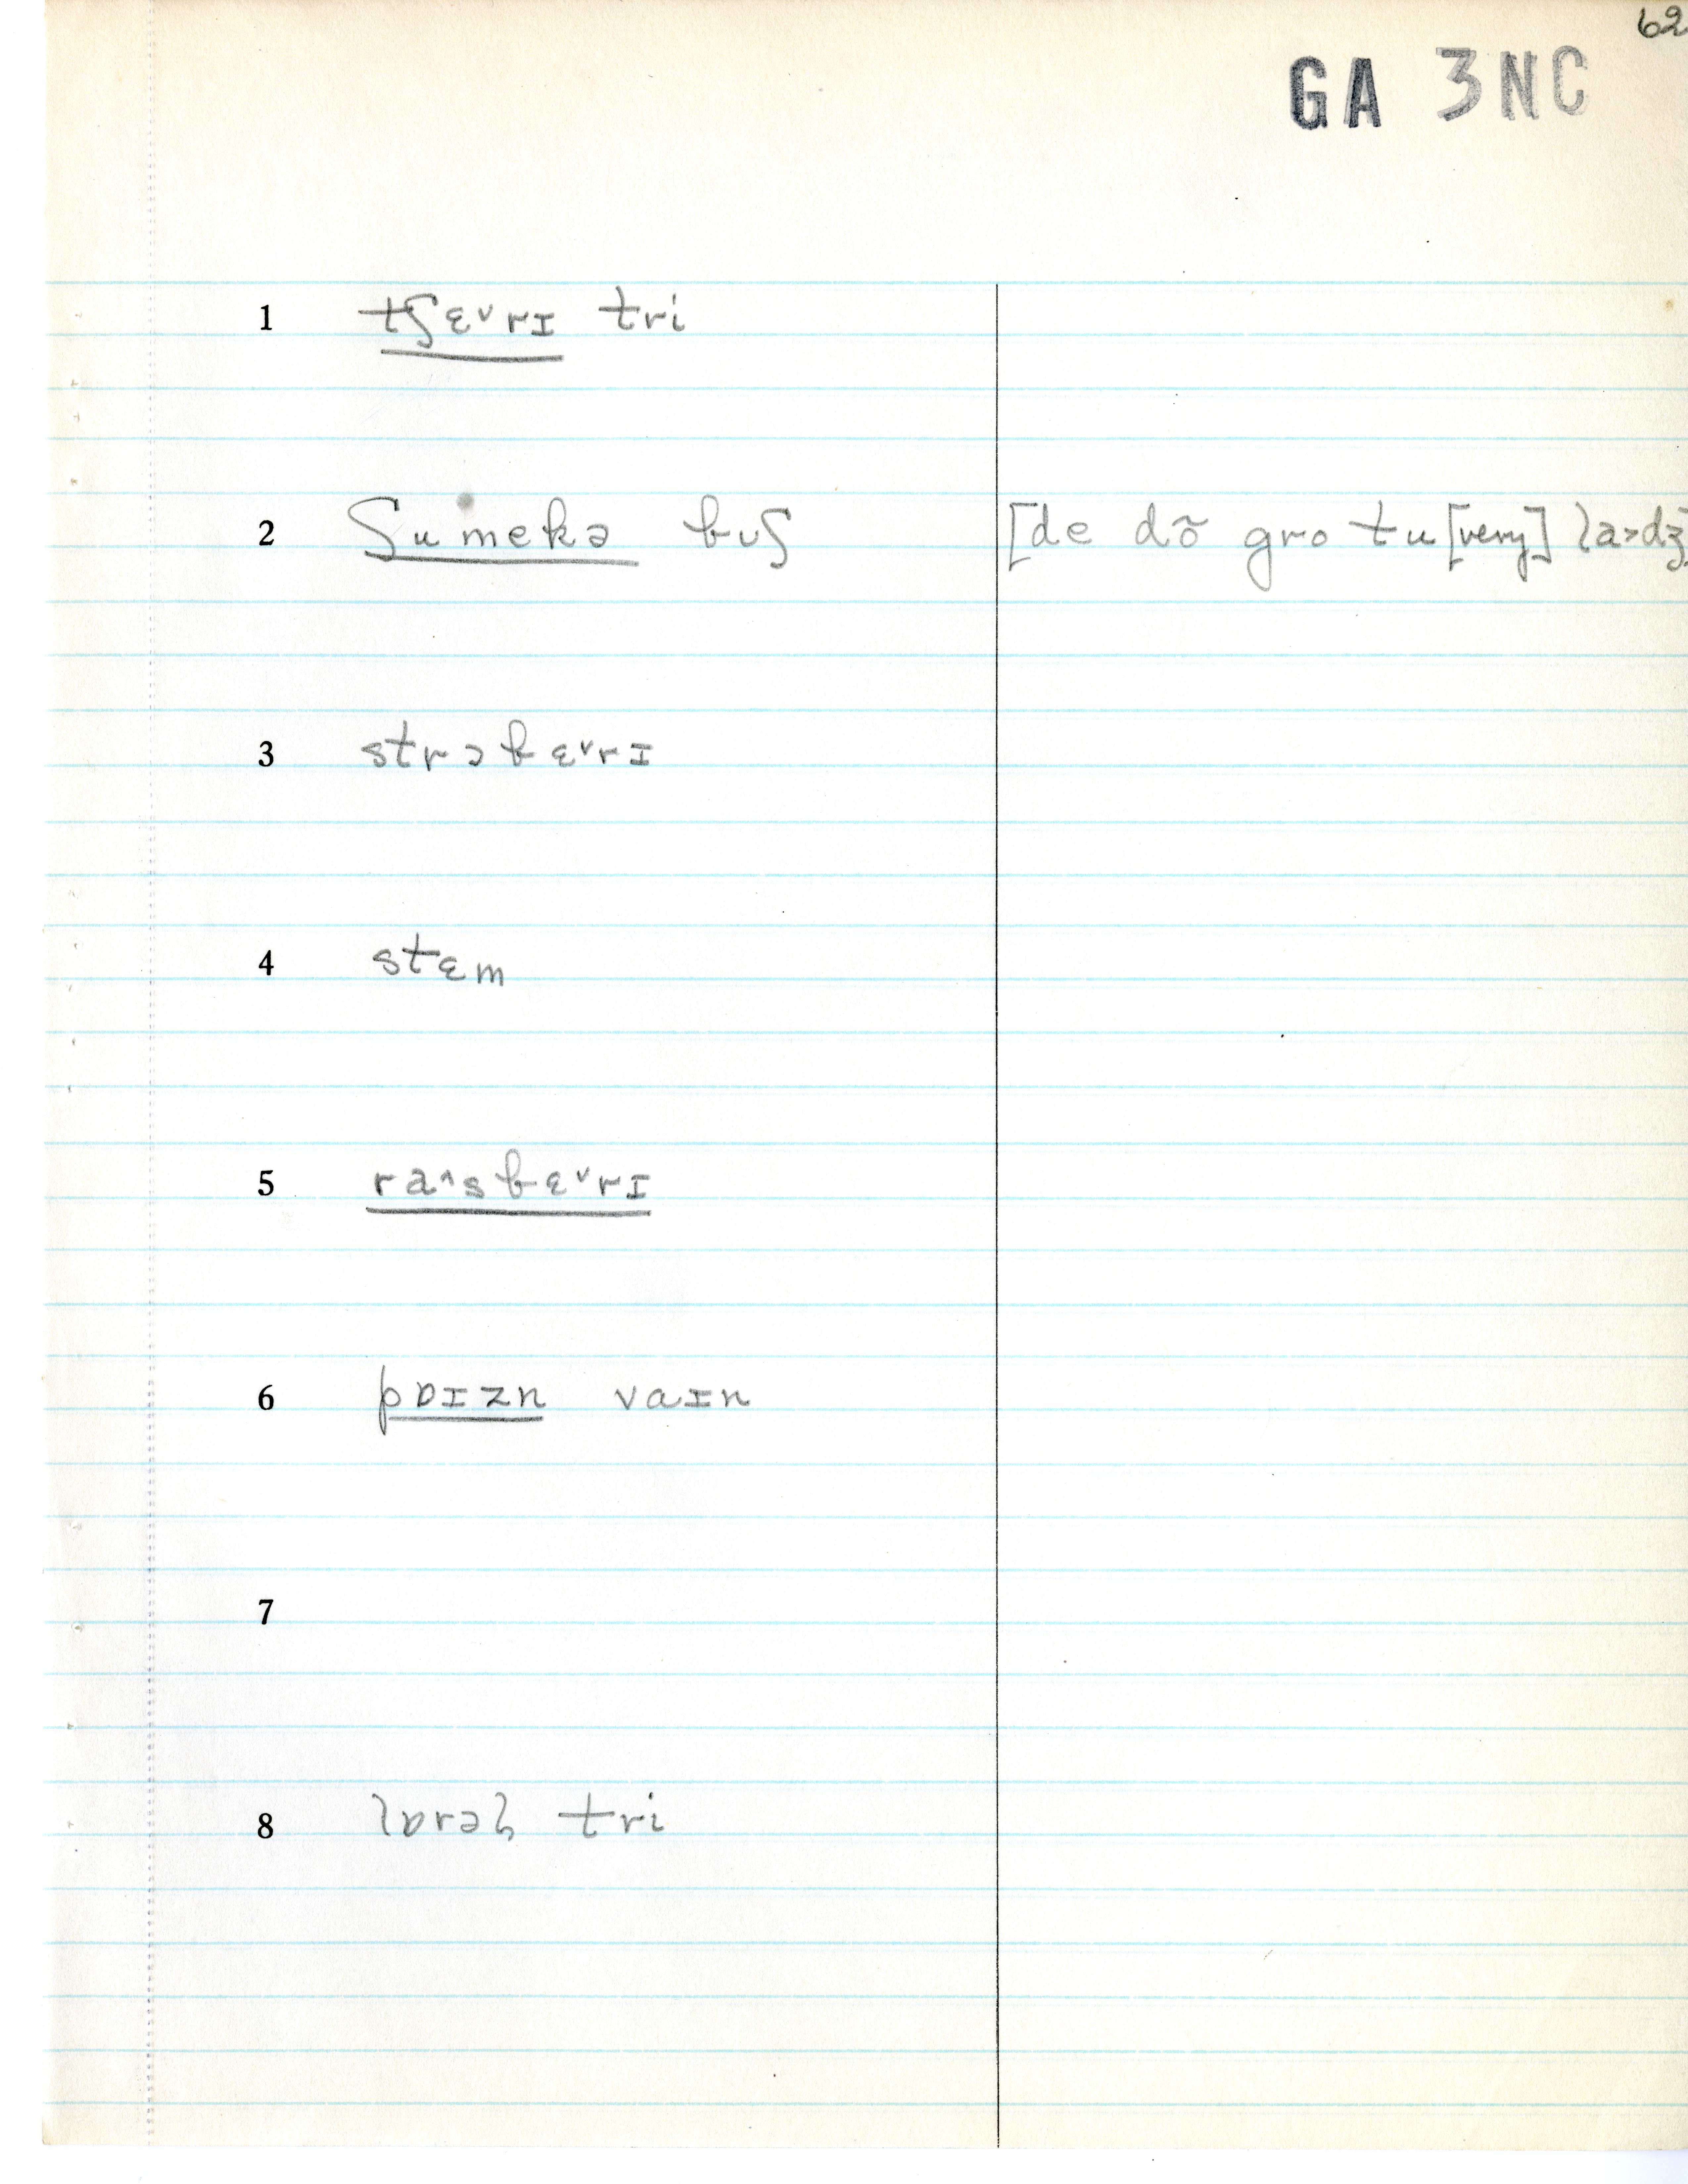 62
GA 3NC
1 tʃɛ˅rɪ tri
2 ʃumekə bʊʃ [de dõ gro tu [very] la˃dʒ]
3 strɔbɛ˅rɪ
4 stɛm
5 ra˄sbɛ˅rɪ
6 pɒɪzn vaɪn
7
8 lɒrəl̩ tri